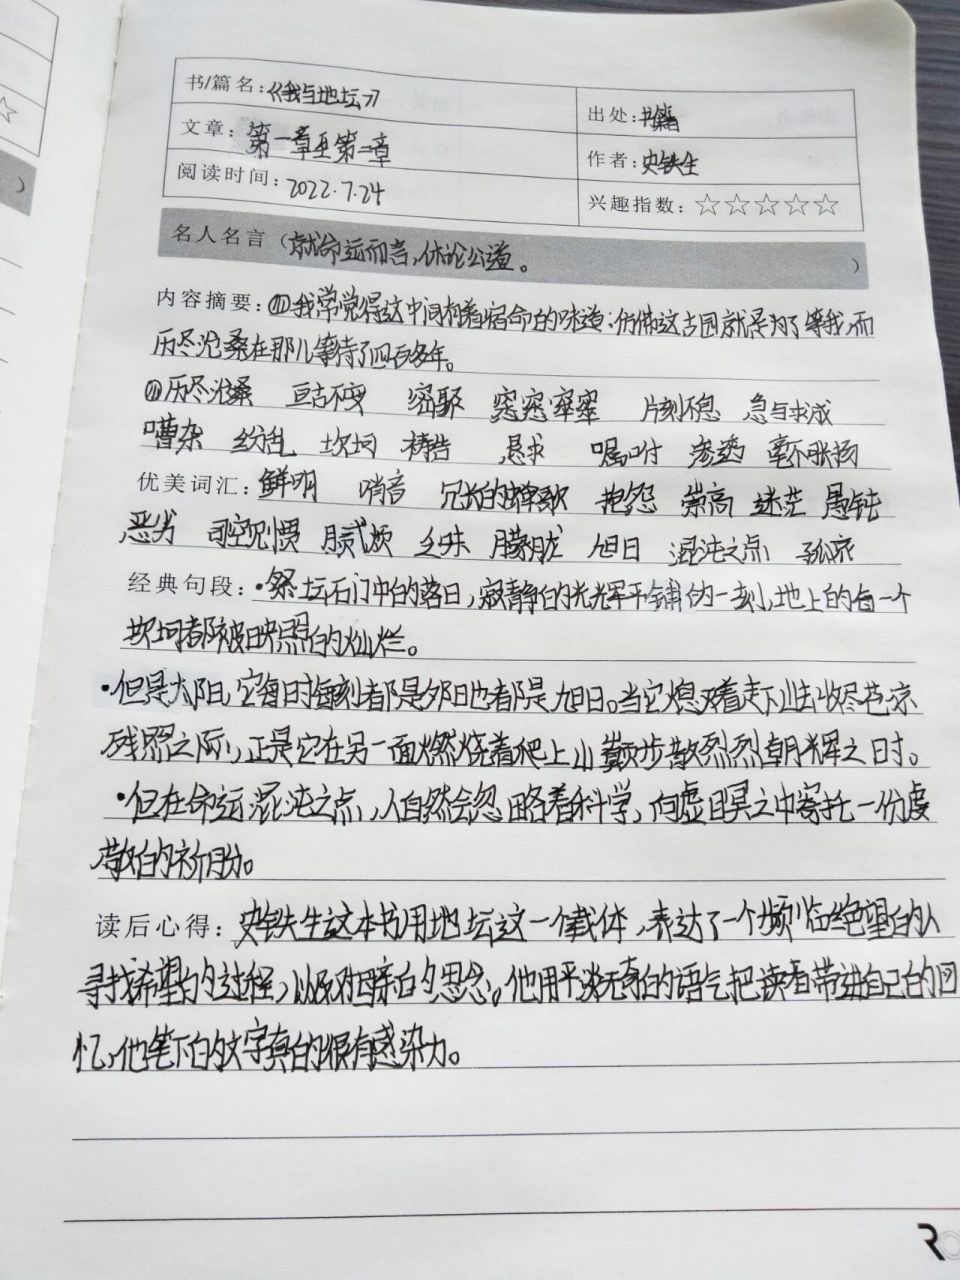 书/篇名:《我与地坛》
出处:书籍
文章:第一章至第二章
作者:史铁生
阅读时间:2022.7.24
兴趣指数:☆☆☆☆☆
名人名言(就命运而言,休论公道。)
内容摘要:⑴我常觉得这中间有着宿命的味道:仿佛这古园就是为了等我,而
历尽沧桑在那儿等待了四百多年。
⑵历尽沧桑 亘古不变 密聚 窸窸窣窣 片刻不息 急与求成
嘈杂 纷乱 坎坷 祷告 恳求 嘱咐 渗透 毫不张扬
优美词汇:鲜明 哨音 冗长的蝉歌 抱怨 崇高 迷茫 愚钝
恶劣 司空见惯 腻烦 朦胧 旭日 混沌之点
经典句段:•祭坛石门中的落日,寂静的光辉平铺的一刻,地上的每一个
坎坷都被映照的灿烂。
•但是太阳,它每时每刻都是夕日也都是旭日。当它熄灭着走下山去收尽苍凉
残照之际,正是它在另一面燃烧着爬上山巅步散烈烈朝辉之时。
•但在命运混沌之点,人自然会忽略着科学,向虚冥之中寄托一份虔
敬的祈盼。
读后心得:史铁生这本书用地坛这一个载体,表达了一个频临绝望的人
寻找希望的过程,以及对母亲的思念。他用平淡无奇的语气把读者带进自己的回
忆,他笔下的文字真的很有感染力。